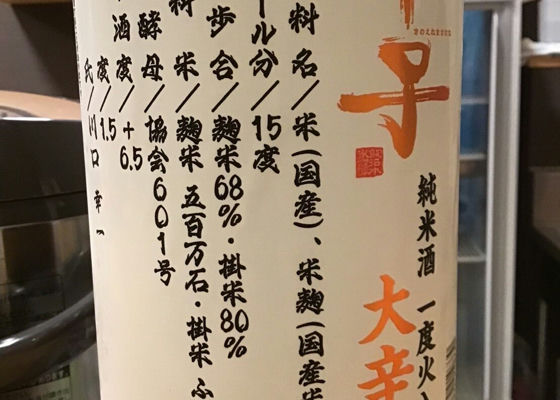 子
きのえねまさむね
純米酒 一度火入
大辛
料名/米(国産)、米麹(国産米
ール分/15度
歩合/麹米68%・掛米80%
料米/麹米 五百万石・掛米 ふ
酵母/協会601号
酒度/+6.5
度/1.5
氏/川口 幸一